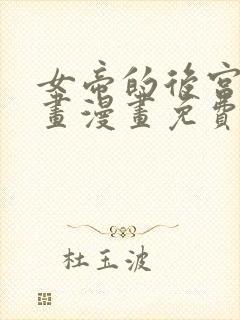 女帝的後宮
畫漫畫免費
杜玉波